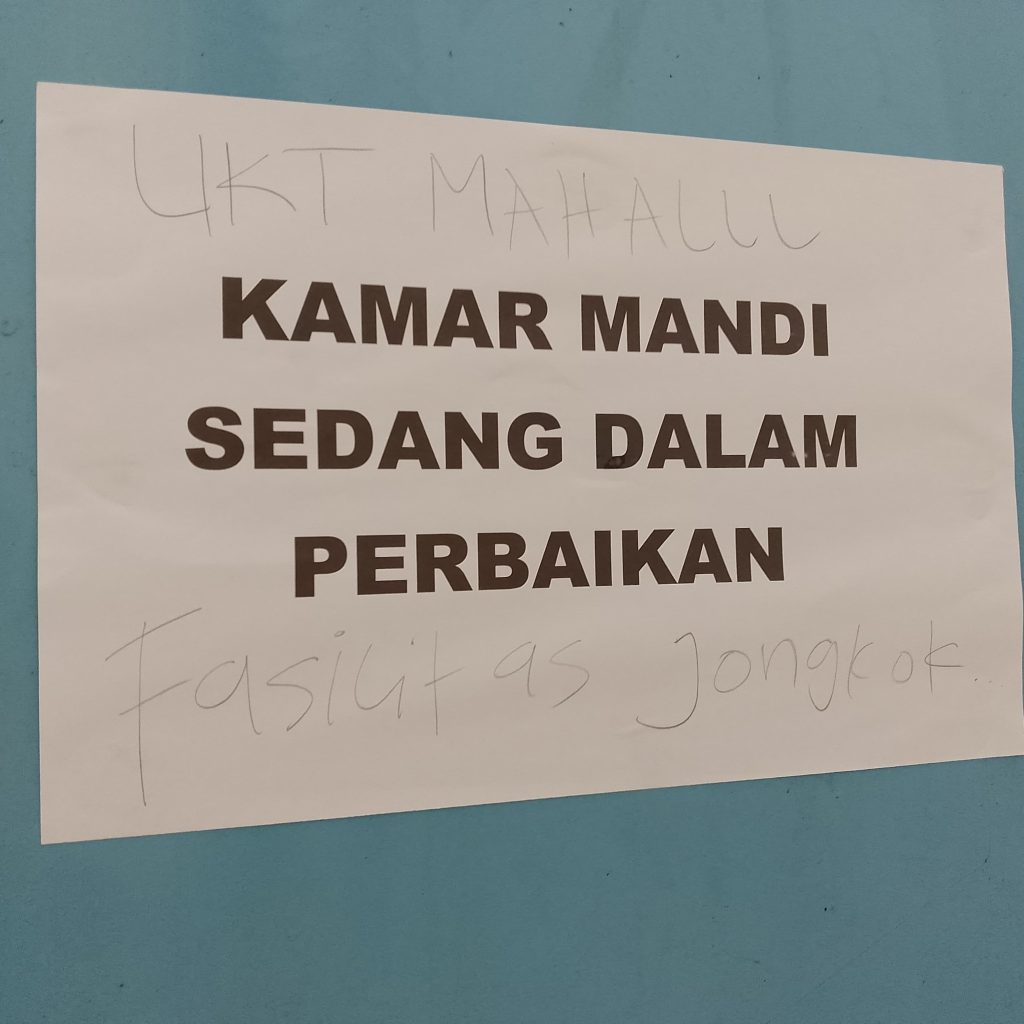 UKT MAHALLL
KAMAR MANDI
SEDANG DALAM
PERBAIKAN
Fasilitas Jongkok..